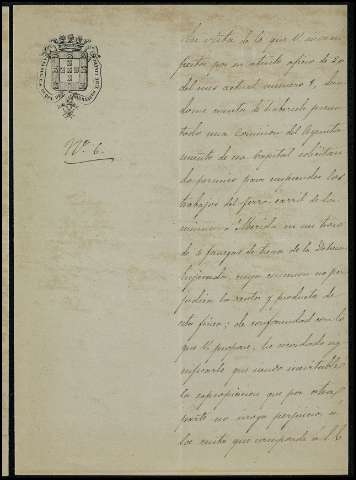 Nº 6.
En vista de lo que V. me ma-
nifiesta por su atento oficio de 20
del mes actual número 8, dan-
dome cuenta de haberle presen-
tado una Comision del Ayunta-
miento de esa Capital solicitan-
do permiso para emprender los
trabajos del ferro-carril de
á Mérida en un trozo
de 5 fanegas de tierra de la Dehesa
cuya no per-
judica la renta y producto de
esta finca; de conformidad con lo
que V. propone, he acordado ma-
nifestarle que siendo inevitable
la espropiacion que por otra
parte no irroga perjuicio á
los que corresponde á S. E